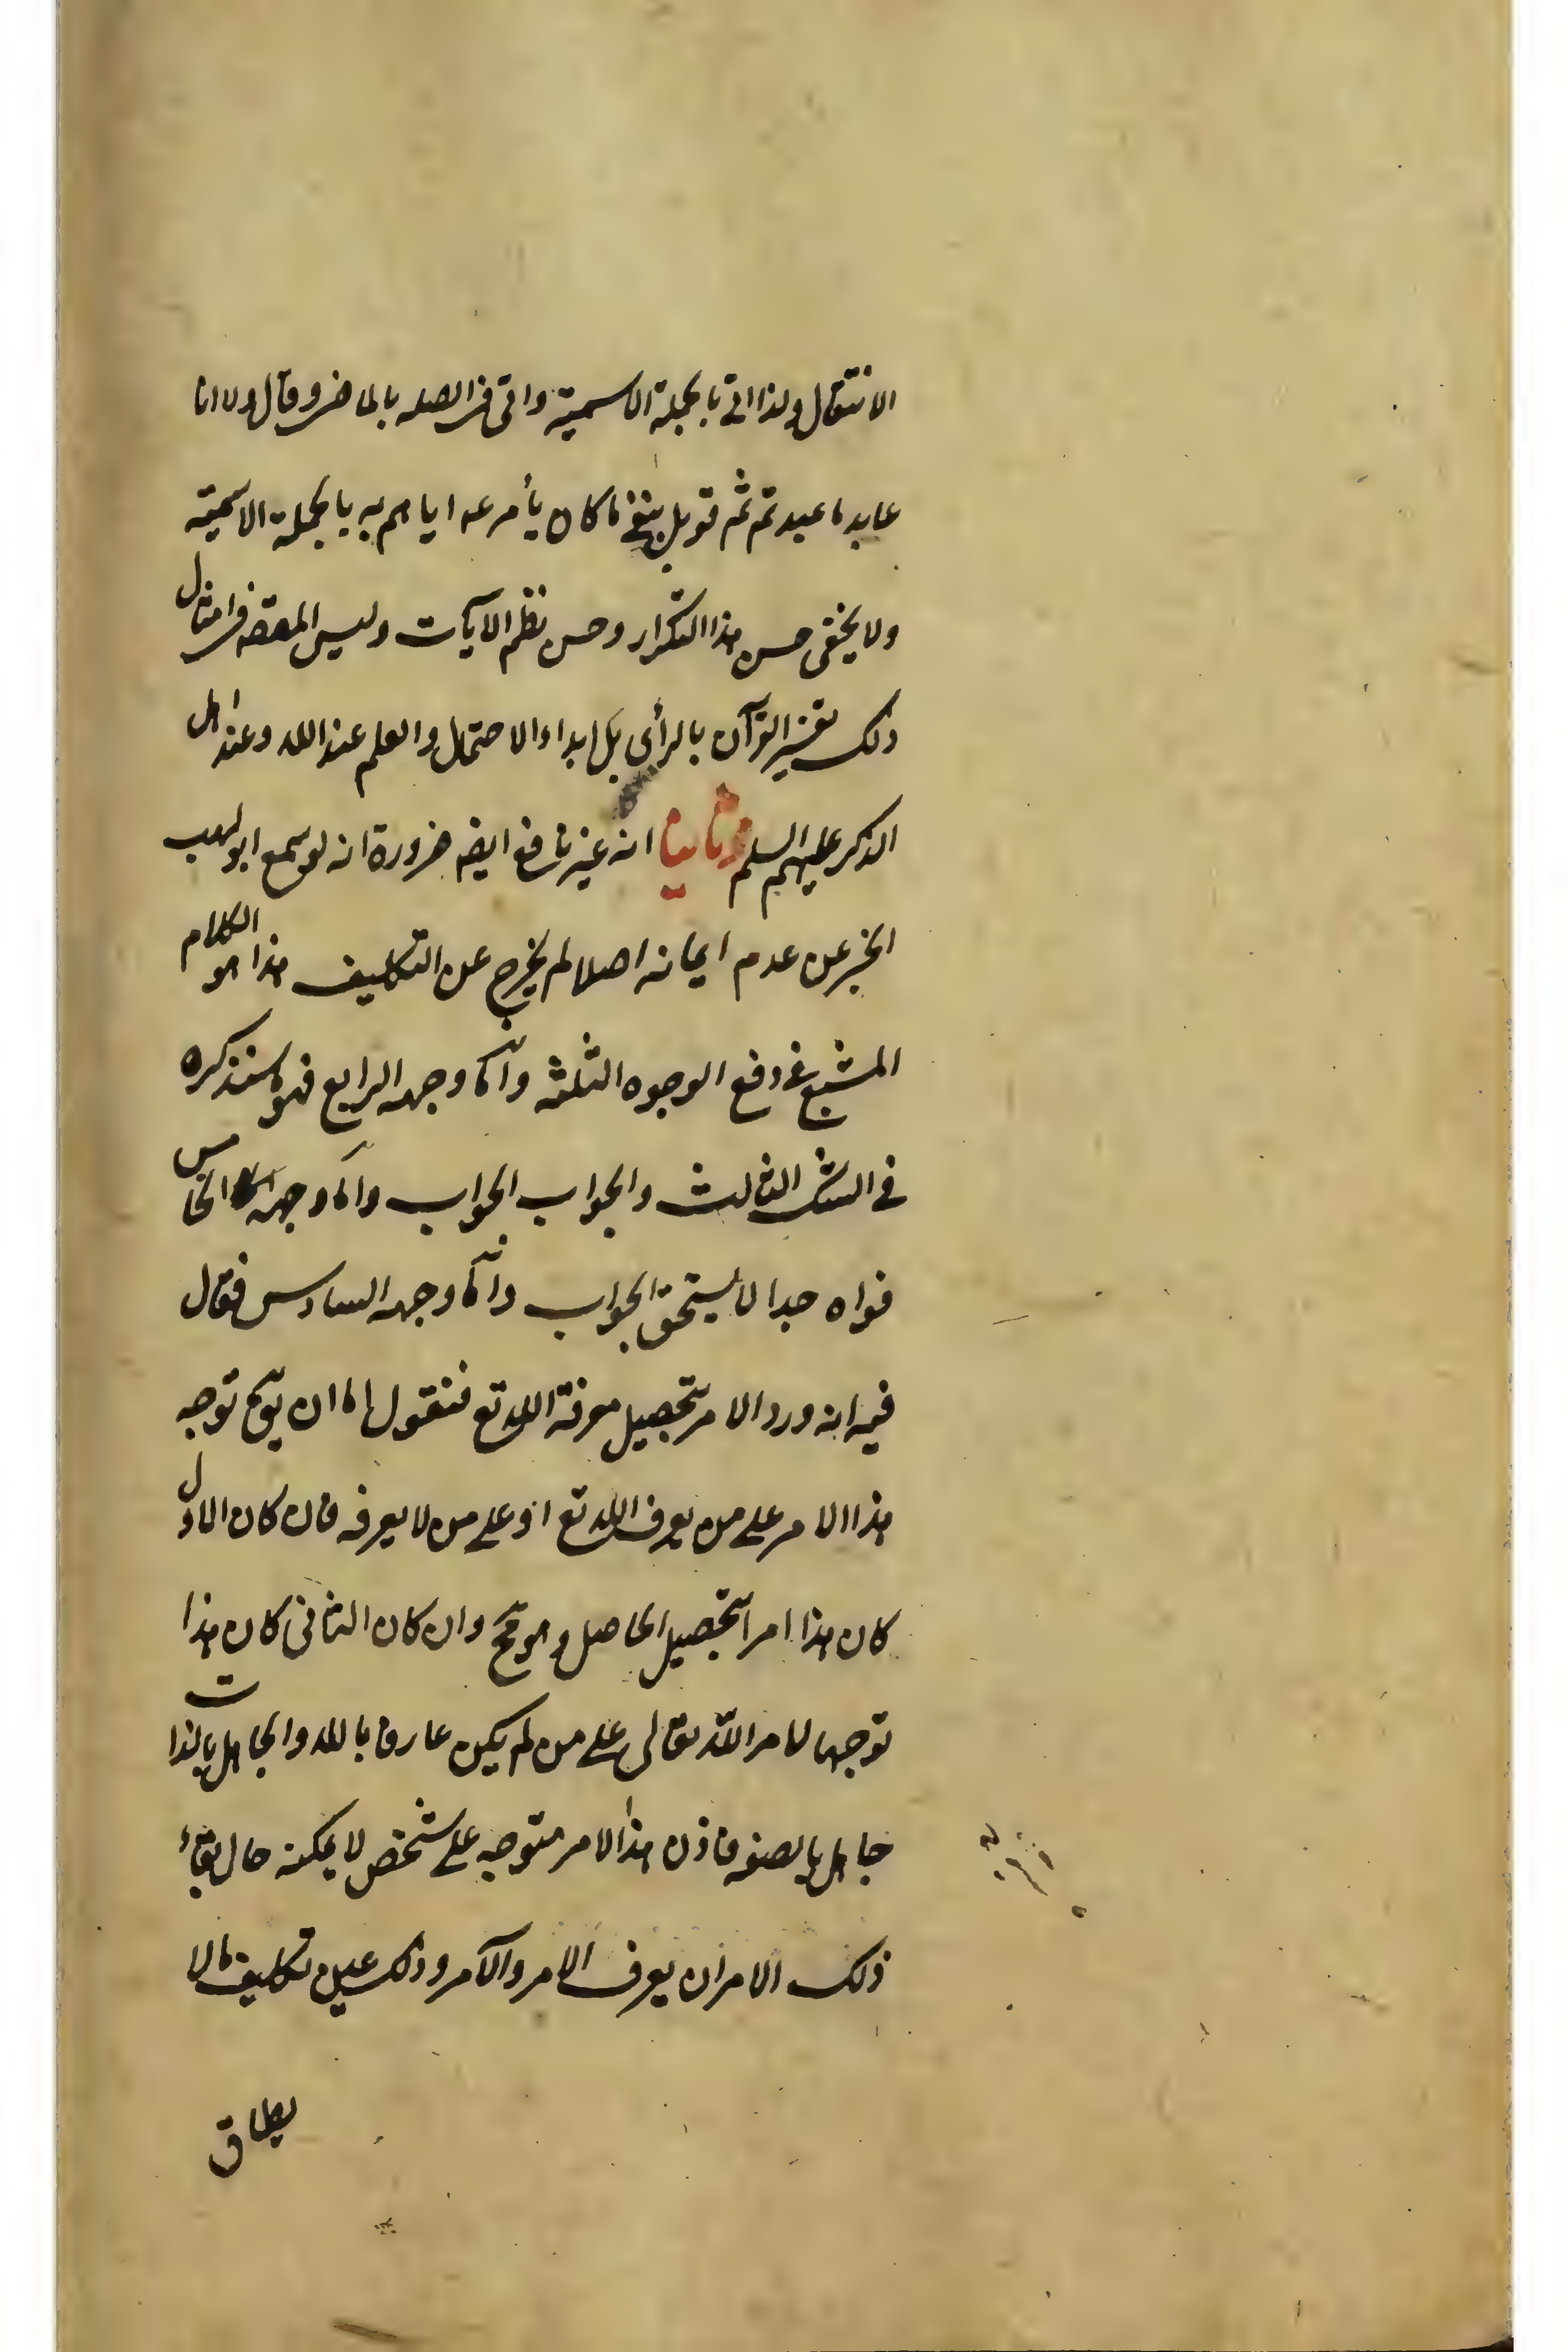 الانتقال ولذا اتى بالجملة الاسمية واتى فى الصله بالماضى وقال ولا انا
عابد ما عبدتم ثم قوبل بنفى ما كان يأمر عه اياهم به بالجملة الاسمية
ولا يخفى حسن هذا التكرار وحسن نظم الآيات وليس المقصد فى امثال
ذلك تفسير القرآن بالرأى بل ابداء الاحتمال والعلم عند الله وعند اهل
الذكر عليهم السلم وثانيا انه غير نافع ايضه ضرورة انه لو سمع ابولهب
الخبر عن عدم ايمانه اصلا لم يخرج عن التكليف هذا هو الكلام
المشبع فى دفع الوجوه الثلثة وامّا وجهه الرابع فهو ما سنذكره
فى الشك الثالث والجواب الجواب وامّا وجهه الخامس
فواه جدا لا يستحق الجواب وامّا وجهه السادس فقال
فيه انه ورد الامر بتحصيل معرفة الله تع فنقول اما ان يتوجه توجه
هذا الامر على من يعرف الله تع او على من لا يعرفه فان كان الاول
كان هذا امرا بتحصيل الحاصل وهو مح وان كان الثانى كان هذا
توجها لامر الله تعالى على من لم يكن عارفا بالله والجاهل بالذات
جاهل بالصفه فاذن هذا الامر متوجه على شخص لا يمكنه حال بقاء
ذلك الامر ان يعرف الامر والآمر وذلك عين تكليف مالا
يطاق